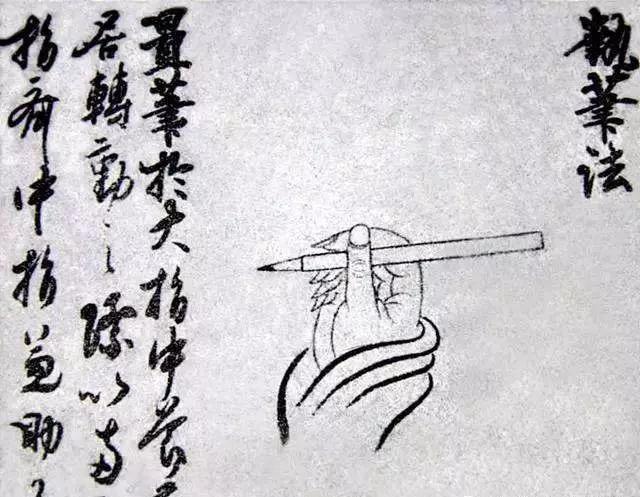 執筆法
置筆於大指中節
居轉動之際以頭
指齊中指兼助